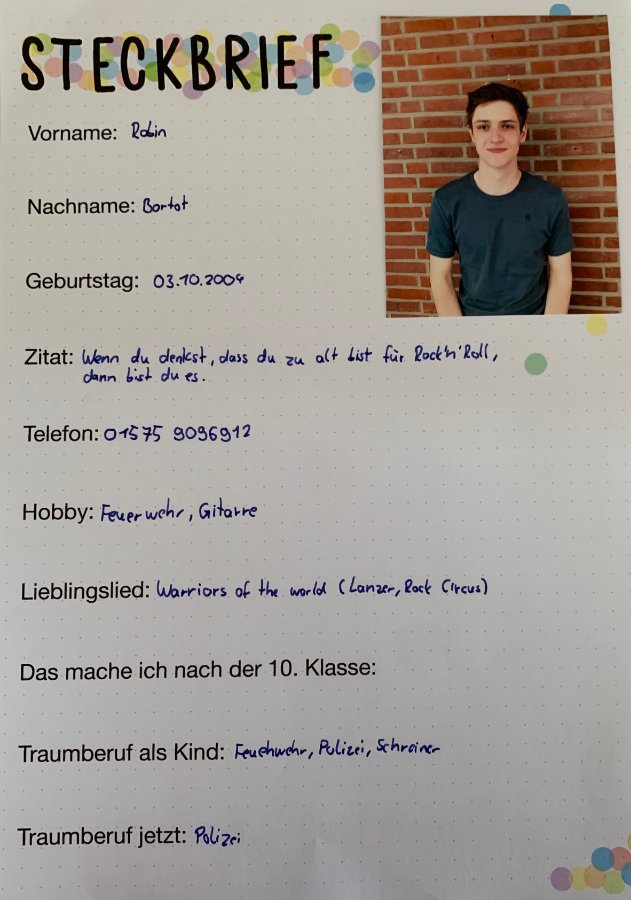 STECKBRIEF
Vorname: Robin
Nachname: Bortot
Geburtstag: 03.10.2004
Zitat: Wenn du denkst, dass du zu alt bist für Rock'n'Roll,
dann bist du es.
Telefon: 01575 9096912
Hobby: Feuerwehr, Gitarre
Lieblingslied: Warriors of the world (Lanzer, Rock Circus)
Das mache ich nach der 10. Klasse:
Traumberuf als Kind: Feuehwehr, Polizei, Schreiner
Traumberuf jetzt: Polizei